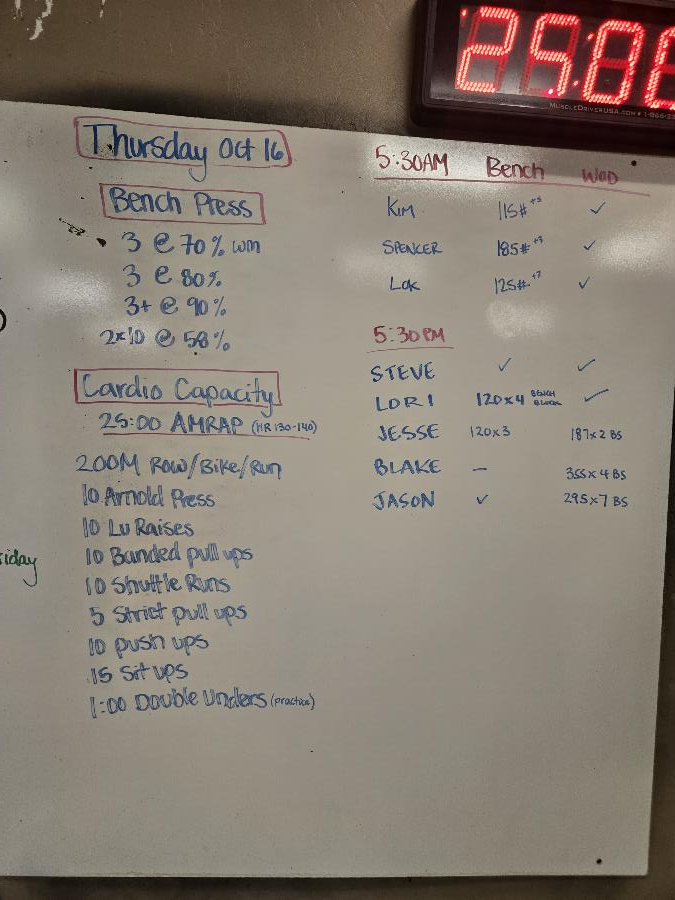 25:00
MUSCLEDRIVERUSA.COM • 1-866-
Thursday Oct 16
Bench Press
3 @ 70% wm
3 @ 80%
3+ @ 90%
2x10 @ 58%
Cardio Capacity
25:00 AMRAP (HR 130-140)
200M Row/Bike/Run
10 Arnold Press
10 Lu Raises
10 Banded pull ups
10 Shuttle Runs
5 Strict pull ups
10 push ups
15 Sit ups
1:00 Double Unders (practice)
5:30AM Bench WOD
KIM 115# ✓
SPENCER 185# ✓
Lok 125# ✓
5:30 PM
STEVE ✓ ✓
LORI 120x4 BENCH BLOCK ✓
JESSE 120x3 187x2 BS
BLAKE — 355x4 BS
JASON ✓ 295x7 BS
riday